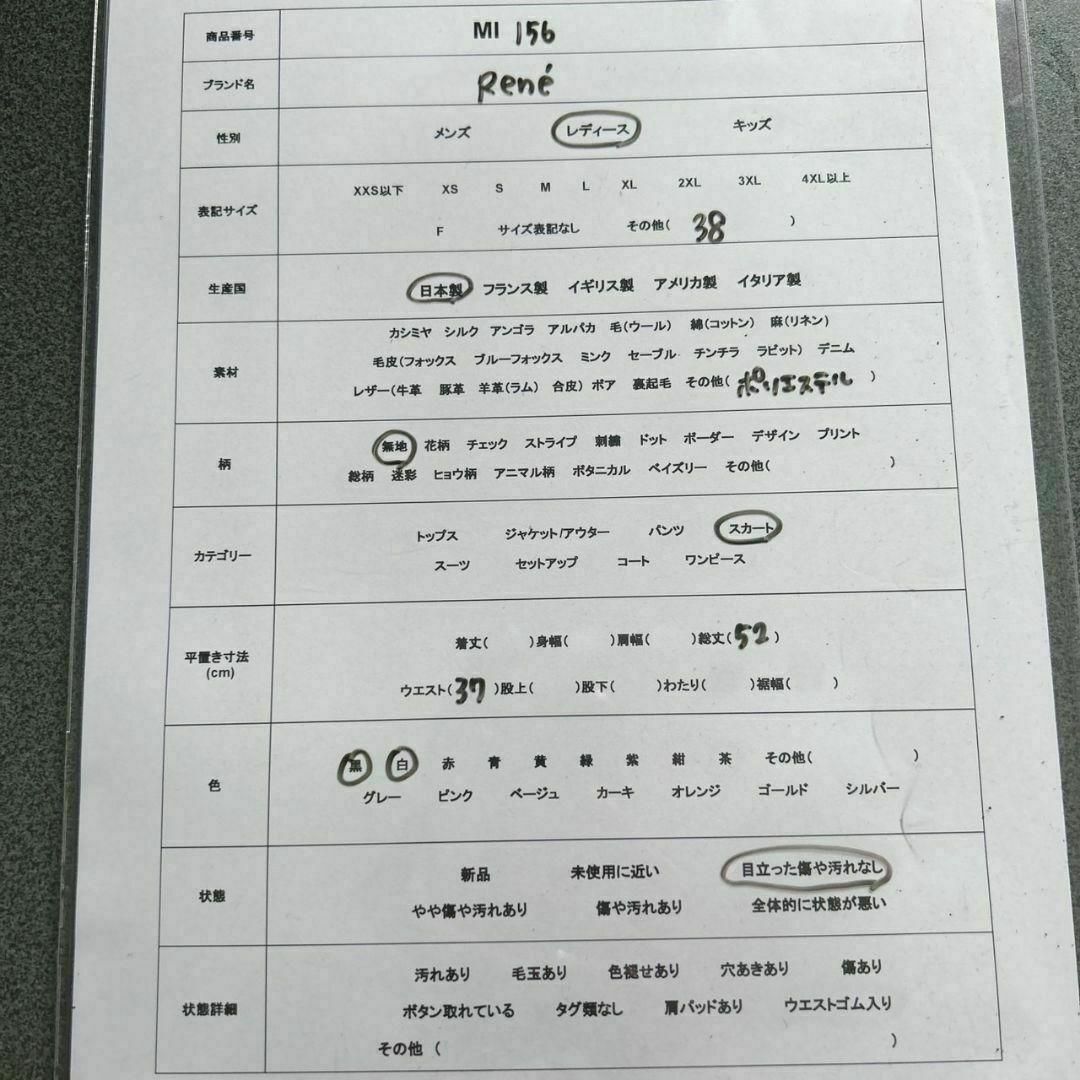 商品番号 MI 156
ブランド名 René
性別 メンズ レディース キッズ
表記サイズ
XXS以下 XS S M L XL 2XL 3XL 4XL以上
F サイズ表記なし その他( 38 )
生産国 日本製 フランス製 イギリス製 アメリカ製 イタリア製
素材
カシミヤ シルク アンゴラ アルパカ 毛(ウール) 綿(コットン) 麻(リネン)
毛皮(フォックス ブルーフォックス ミンク セーブル チンチラ ラビット) デニム
レザー(牛革 豚革 羊革(ラム) 合皮) ボア 裏起毛 その他( ポリエステル )
柄
無地 花柄 チェック ストライプ 刺繍 ドット ボーダー デザイン プリント
総柄 迷彩 ヒョウ柄 アニマル柄 ボタニカル ペイズリー その他( )
カテゴリー
トップス ジャケット/アウター パンツ スカート
スーツ セットアップ コート ワンピース
平置き寸法
(cm)
着丈( )身幅( )肩幅( )総丈( 52 )
ウエスト( 37 )股上( )股下( )わたり( )裾幅( )
色
黒 白 赤 青 黄 緑 紫 紺 茶 その他( )
グレー ピンク ベージュ カーキ オレンジ ゴールド シルバー
状態
新品 未使用に近い 目立った傷や汚れなし
やや傷や汚れあり 傷や汚れあり 全体的に状態が悪い
状態詳細
汚れあり 毛玉あり 色褪せあり 穴あきあり 傷あり
ボタン取れている タグ類なし 肩パッドあり ウエストゴム入り
その他 ( )